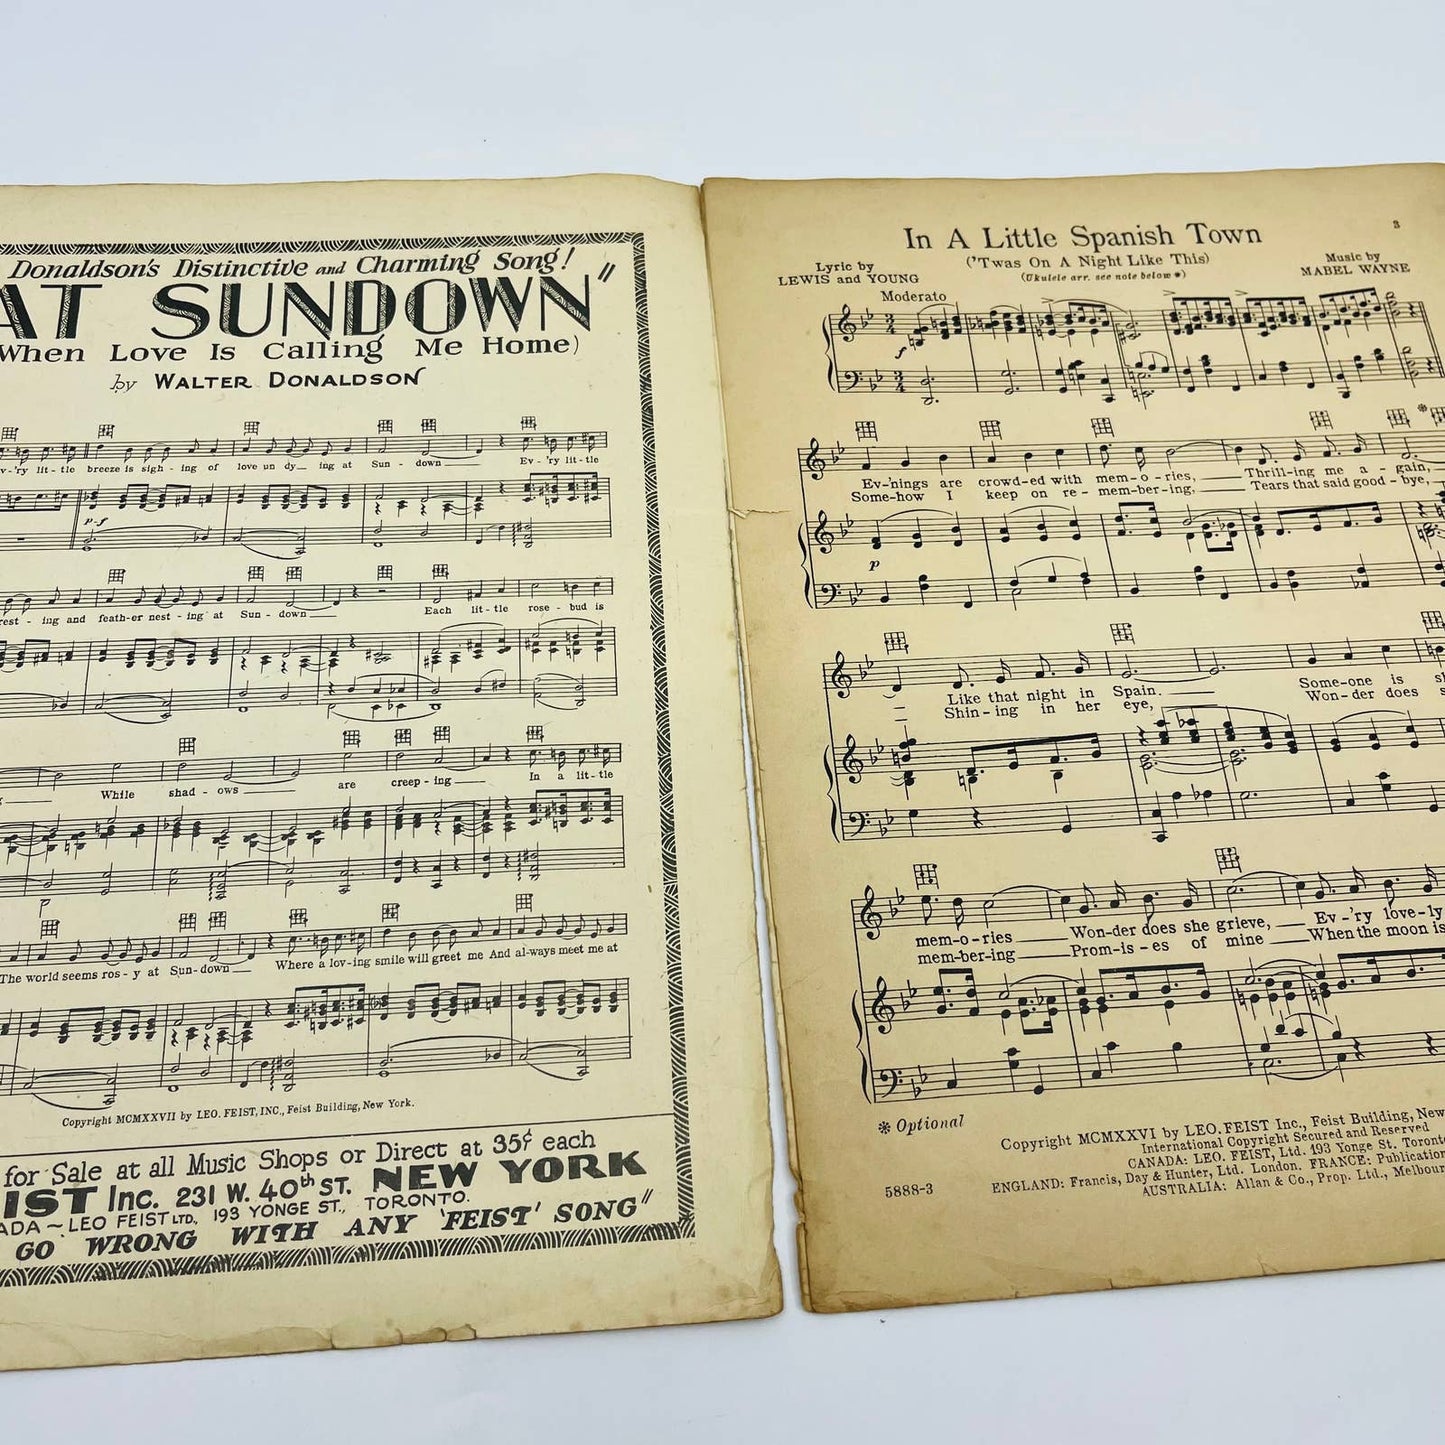 Donaldson's Distinctive and Charming Song!
AT SUNDOWN"
When Love Is Calling Me Home)
by WALTER DONALDSON
v-'ry lit-tle breeze is sigh-ing of love un dy-ing at Sun-down Ev-'ry lit-tle
p-f
rest-ing and feath-er nest-ing at Sun-down Each lit-tle rose-bud is
While shad-ows are creep-ing In a lit-tle
The world seems ros-y at Sun-down Where a lov-ing smile will greet me And al-ways meet me at
Copyright MCMXXVII by LEO. FEIST, INC., Feist Building, New York.
for Sale at all Music Shops or Direct at 35¢ each
IST Inc. 231 W. 40th ST. NEW YORK
ADA ~ LEO FEIST LTD., 193 YONGE ST., TORONTO.
GO WRONG WITH ANY 'FEIST' SONG"
3
In A Little Spanish Town
('Twas On A Night Like This)
(Ukulele arr. see note below *)
Lyric by
LEWIS and YOUNG
Music by
MABEL WAYNE
Moderato
3
4
f
3
4
*
Ev-'nings are crowd-ed with mem-o-ries, Thrill-ing me a-gain,
Some-how I keep on re-mem-ber-ing, Tears that said good-bye,
p
Like that night in Spain. Some-one is
Shin-ing in her eye, Won-der does
mem-o-ries Won-der does she grieve, Ev-'ry love-ly
mem-ber-ing Prom-is-es of mine When the moon is
* Optional
Copyright MCMXXVI by LEO. FEIST Inc., Feist Building, New
International Copyright Secured and Reserved
CANADA: LEO. FEIST, Ltd. 193 Yonge St. Toronto
5888-3
ENGLAND: Francis, Day & Hunter, Ltd. London. FRANCE: Publication
AUSTRALIA: Allan & Co., Prop. Ltd., Melbou